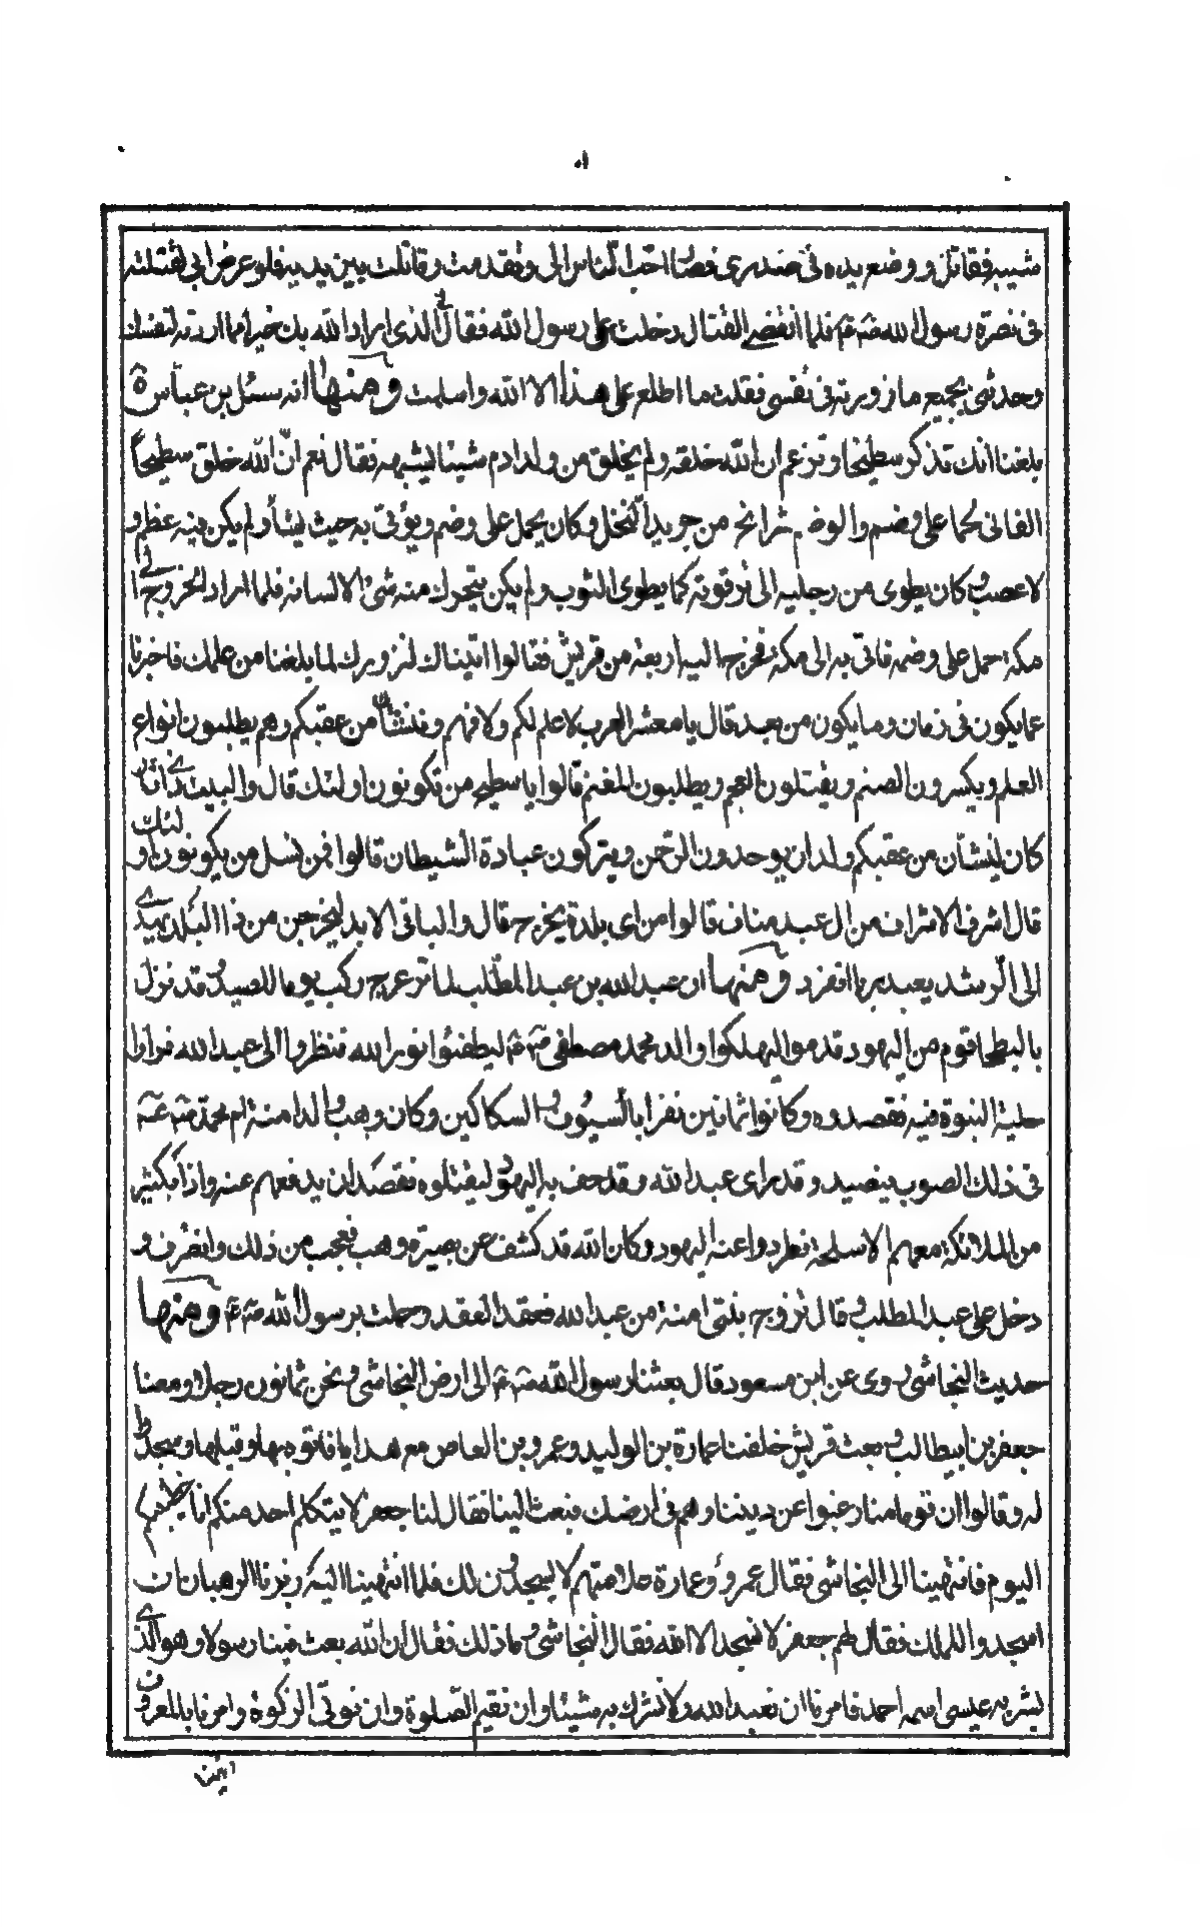 شيبه فقاتل ووضع يده في صدري فصار احب الناس الى وتقدمت وقاتلت بين يديه فلو عرض ابي لقتلته
في نصرة رسول الله صم فلما انقضى القتال دخلت على رسول الله فقال لي الذي اراد الله بك خير مما اردته لنفسك
وحدثني بجميع ما زورته في نفسي فقلت ما اطلع على هذا الا الله واسلمت ومنها انه سئل بن عباس
بلغنا انك تذكر سطيحا وتزعم ان الله خلقه ولم يخلق من ولد ادم شيئا يشبهه فقال نعم ان الله خلق سطيحا
الغاني لحما على وضم والوضم شرائح من جريد النخل وكان يحمل على وضم ويؤتى به حيث يشأ ولم يكن فيه عظم و
لا عصب وكان يطوى من رجليه الى ترقوته كما يطوى الثوب ولم يكن يتحرك منه شئ الا لسانه فلما اراد الخروج الى
مكة حمل على وضمه فاتي به الى مكة فخرج اليه اربعة من قريش فقالوا اتيناك لنزورك لما بلغنا من علمك فاخبرنا
عما يكون في زمان وما يكون من بعد قال يا معشر العرب لا علم لكم ولا فهم وينشأ من عقبكم دهم يطلبون انواع
العلم ويكسرون الصنم ويقتلون العجم ويطلبون المغنم قالوا يا سطيح من تكونون اولئك قال والبيت ذي الار
كان لينشأن من عقبكم ولدان يوحدون الرحمن ويتركون عبادة الشيطان قالوا فمن نسل من يكونون اولئك
قال اشرف الاشراف من ال عبد مناف قالوا من اي بلدة يخرج قال والباقي الابد ليخرجن من ذا البلد يهدي
الى الرشد يعبد ربا انفرد ومنها ان عبد الله بن عبد المطلب لما ترعرع ركب يوما للصيد وقد نزل
بالبطحا قوم من اليهود قدموا ليهلكوا والد محمد مصطفى صم ليطفئوا نور الله فنظروا الى عبد الله فراوا
حلية النبوة فيه فقصدوه وكانوا ثمانين نفرا بالسيوف والسكاكين وكان وهب والد امنة ام محمد صم
في ذلك الصوب يصيد وقد راى عبد الله وقد حف به اليهود ليقتلوه فقصد ان يدفعهم عنه واذا بكثير
من الملائكة معهم الاسلحة فطردوا عنه اليهود وكان الله قد كشف عن بصيرة وهب فتعجب من ذلك وانصرف و
دخل على عبد المطلب وقال تزوج بنتي امنة من عبد الله فعقد العقد وحملت برسول الله صم ومنها
حديث النجاشي روى عن ابن مسعود قال بعثنا رسول الله صم الى ارض النجاشي ونحن ثمانون رجلا ومعنا
جعفر بن ابيطالب وبعث قريش خلفنا عمارة بن الوليد وعمرو بن العاص مع هدايا فاتوه بها وقبلها وسجدوا
له وقالوا ان قوما منا رغبوا عن ديننا وهم في ارضك فبعث الينا فقال لنا جعفر لا يتكلم احد منكم انا خطيبكم
اليوم فانتهينا الى النجاشي فقال عمرو وعمارة انهم لا يسجدون لك فلما انتهينا اليه زبرنا الرهبان ان
اسجدوا للملك فقال لهم جعفر لا نسجد الا الله فقال النجاشي وما ذلك فقال ان الله بعث فينا رسولا وهو الذي
بشر به عيسى اسمه احمد فامرنا ان نعبد الله ولا نشرك به شيئا وان نقيم الصلوة وان نوتي الزكوة وامرنا بالمعروف